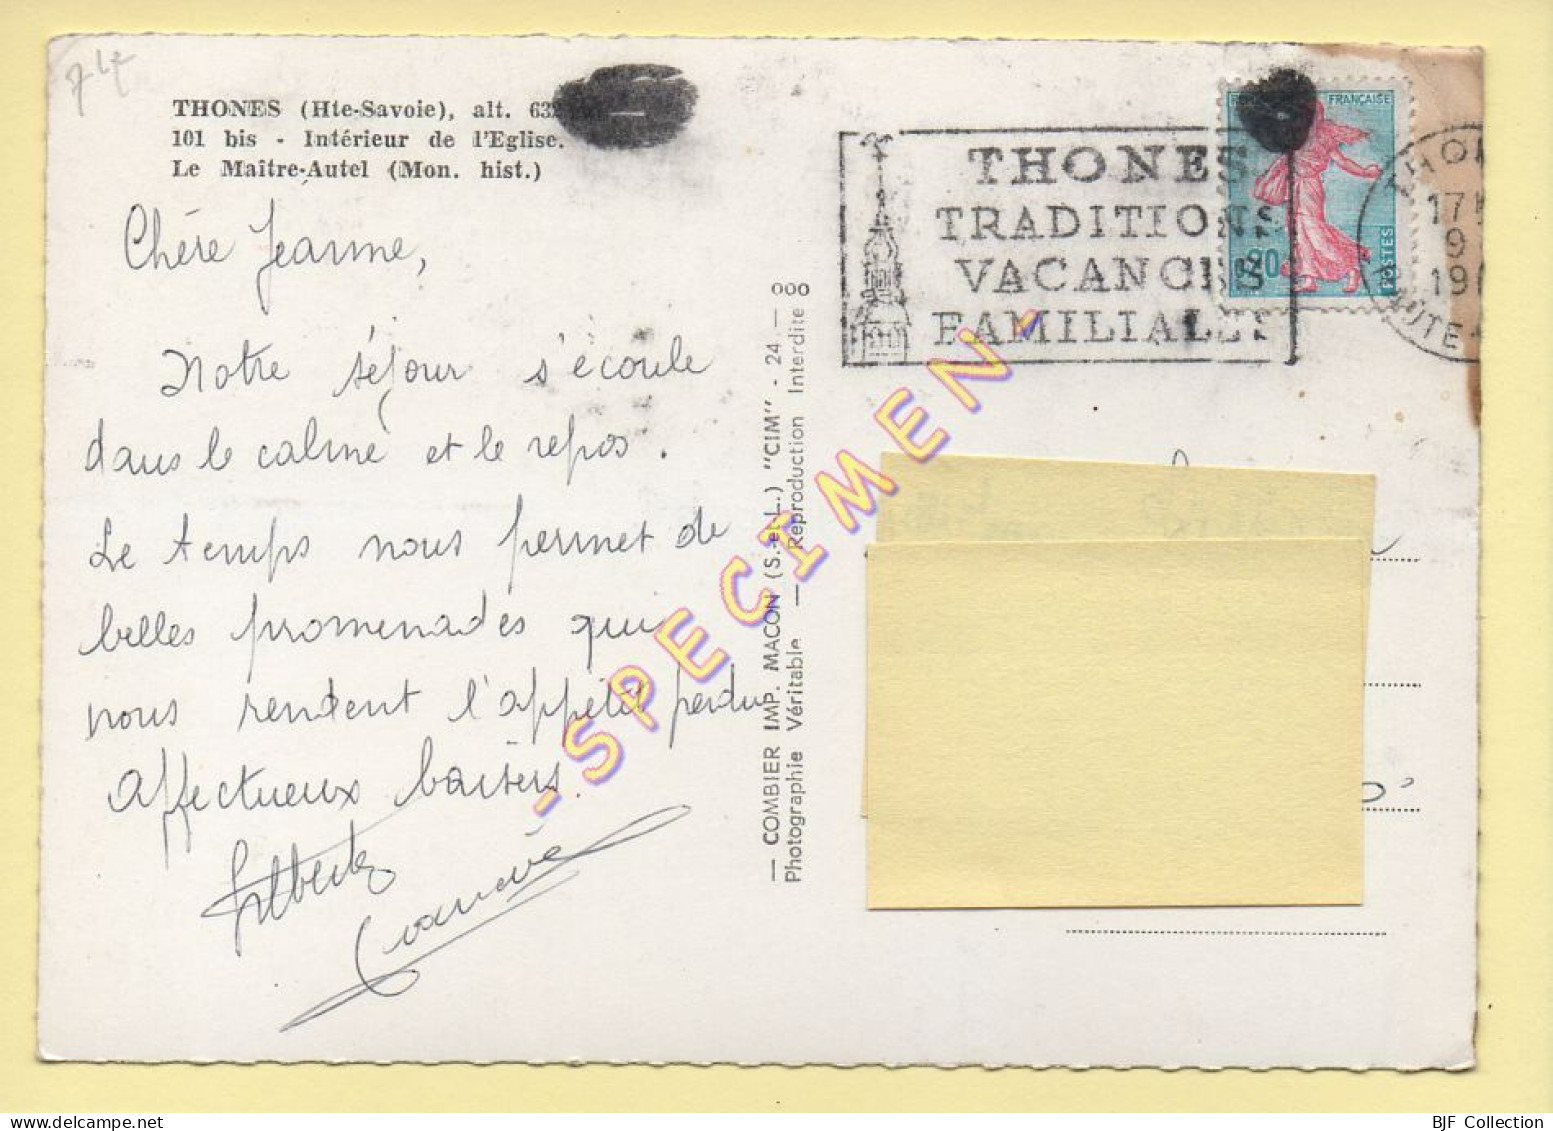 74
THONES (Hte-Savoie), alt. 63
101 bis - Intérieur de l'Eglise.
Le Maître-Autel (Mon. hist.)
Chère Jeanne,
Notre séjour s'écoule
dans le calme et le repos.
Le temps nous permet de
belles promenades qui
nous rendent l'appétit perdu
Affectueux baisers.
- SPECIMEN -
— COMBIER IMP. MACON (S.-et-L.) "CIM" - 24 — ooo
Photographie Véritable — Reproduction Interdite
THONES
TRADITIONS
VACANCES
FAMILIALES
FRANÇAISE
0.20
POSTES
17 H
9
19
HAUTE-
BJF Collection